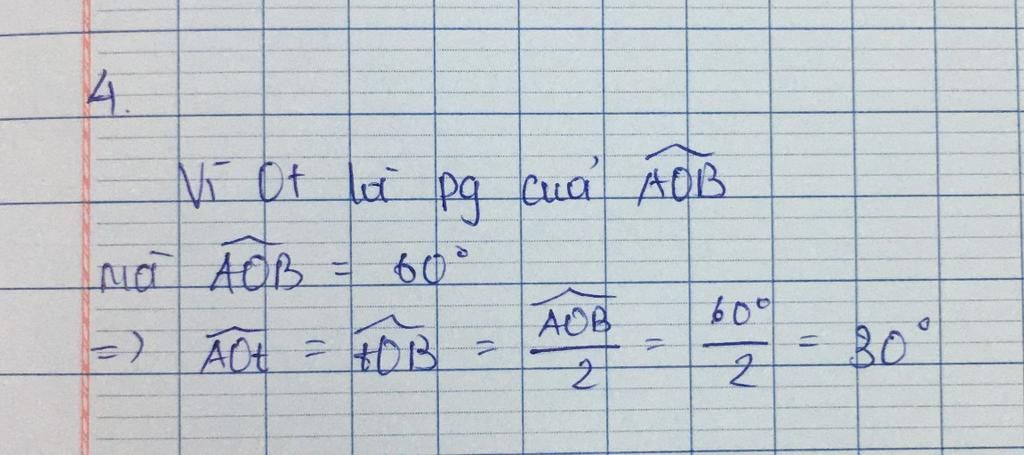 4.
Vì Ot là pg của \widehat{AOB}
mà \widehat{AOB} = 60°
=> \widehat{AOt} = \widehat{tOB} = \frac{\widehat{AOB}}{2} = \frac{60°}{2} = 30°